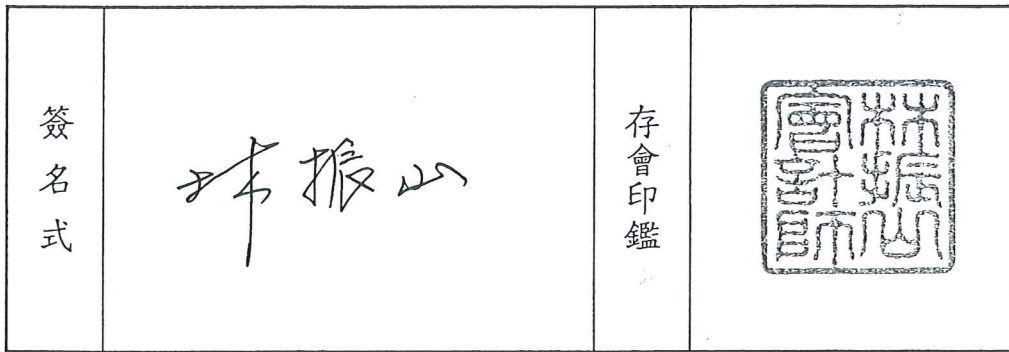 簽名式
林振山
存會印鑑
林振山
會計師